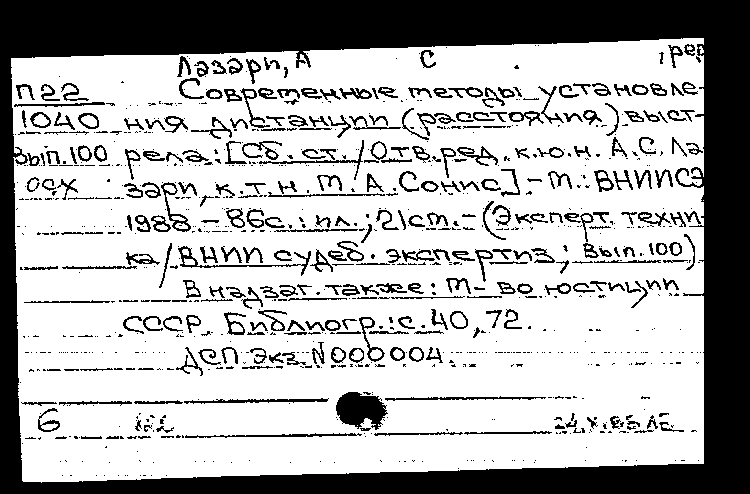 Лазари, А С , ред
П22 Современные методы установле-
1040 ния дистанции (расстояния) выст-
Вып.100 рела: [Сб. ст. / Отв. ред. к.ю.н. А.С. Ла-
осх зари, к.т.н. М.А. Сонис]. - М.: ВНИИСЭ
1988 - 86с.: ил.; 21см. - (Эксперт. техни-
ка / ВНИИ судеб. экспертиз; Вып.100)
В надзаг. также: М-во юстиции
СССР. Библиогр.: с. 40, 72.
ДСП. Экз. N000004.
6